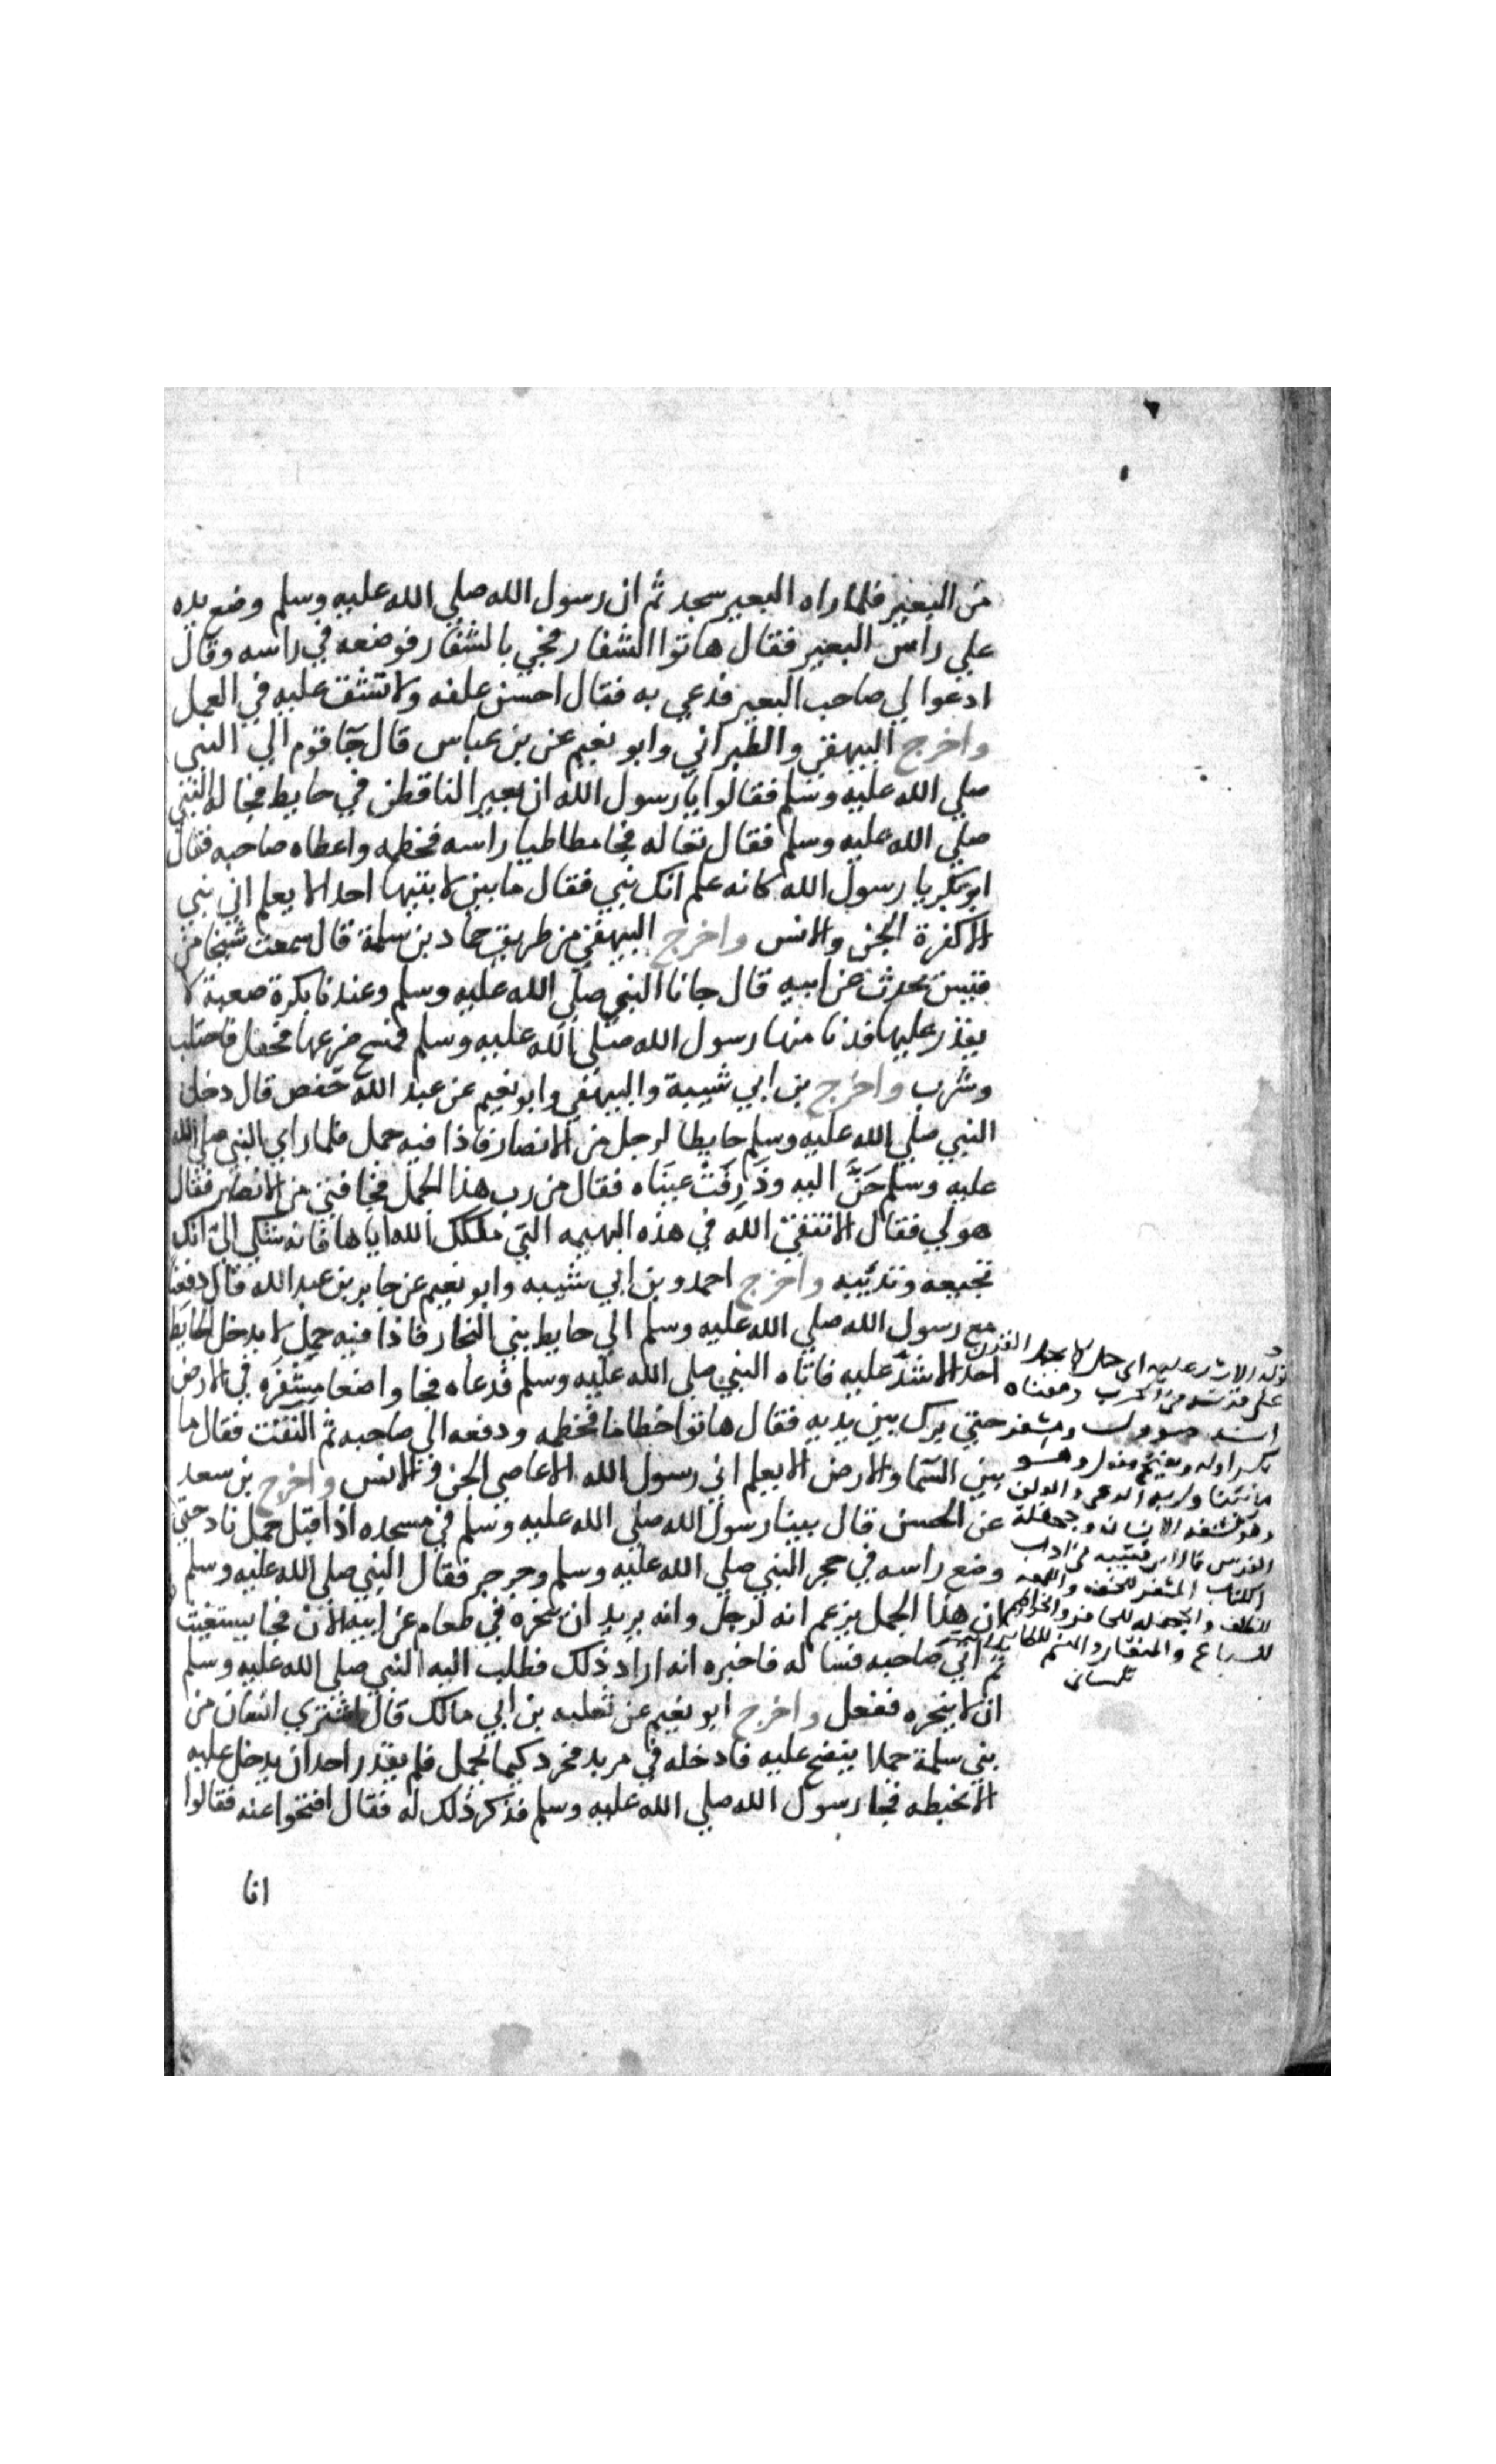 من البعير فلما راه البعير سجد ثم ان رسول الله صلي الله عليه وسلم وضع يده
علي راس البعير فقال هاتوا الشفار فجي بالشفار فوضعه في راسه وقال
ادعوا لي صاحب البعير فدعي به فقال احسن علفه ولا تشق عليه في العمل
واخرج البيهقي والطبراني وابو نعيم عن بن عباس قال جا قوم الي النبي
صلي الله عليه وسلم فقالوا يا رسول الله ان بعير النا قطن في حايط فجا له النبي
صلي الله عليه وسلم فقال تعاله فجا مطاطيا راسه فخطمه واعطاه صاحبه فقال
ابو بكر يا رسول الله كانه علم انك نبي فقال ما بين لابتيها احد الا يعلم اني نبي
الا كفرة الجن والانس واخرج البيهقي من طريق حماد بن سلمة قال سمعت شيخا من
قيس يحدث عن ابيه قال جانا النبي صلي الله عليه وسلم وعندنا بكرة صعبة لا
يقدر عليها فدنا منها رسول الله صلي الله عليه وسلم فمسح ضرعها فحفل فاحتلب
وشرب واخرج بن ابي شيبة والبيهقي وابو نعيم عن عبد الله جعفر قال دخل
النبي صلي الله عليه وسلم حايطا لرجل من الانصار فاذا فيه جمل فلما راي النبي صلي الله
عليه وسلم حَنَّ اليه وذَرِفَتْ عينَاه فقال من رب هذا الجمل فجا فتي من الانصار فقال
هو لي فقال الا تتقي الله في هذه البهيمه التي ملكك الله اياها فانه شكي اليّ انك
تجيعه وتدئبه واخرج احمد وبن ابي شيبه وابو نعيم عن جابر بن عبد الله قال دفعنا
مع رسول الله صلي الله عليه وسلم الي حايط بني النجار فاذا فيه جمل لا يدخل الحايط
احد الا شدَّ عليه فاتاه النبي صلي الله عليه وسلم فدعاه فجا واضعا مِشْفَرَه في الارض
حتي برك بين يديه فقال هاتوا خطاما فخطمه ودفعه الي صاحبه ثم التفت فقال ما
بين السما والارض الا يعلم اني رسول الله الا عاصي الجن والانس واخرج بن سعد
عن الحسن قال بينا رسول الله صلي الله عليه وسلم في مسجده اذ اقبل جمل ناد حتي
وضع راسه في حجر النبي صلي الله عليه وسلم وجرجر فقال النبي صلي الله عليه وسلم
ان هذا الجمل يزعم انه لرجل وانه يريد ان ينحره في طعام عن ابيه الان فجا يستغيث
ثم اتي صاحبه فساله فاخبره انه اراد ذلك فطلب اليه النبي صلي الله عليه وسلم
ان لا ينحره ففعل واخرج ابو نعيم عن ثعلبه بن ابي مالك قال اشتري انسان من
بني سلمة جملا ينضح عليه فادخله في مربد فجرد كيما يحمل فلم يقدر احد ان يدخل عليه
الا تخبطه فجا رسول الله صلي الله عليه وسلم فذكر ذلك له فقال افتحوا عنه فقالوا
انا
قوله الا شد عليه اي حمل
ومعناه
ومشفر
بكسر اوله وبفتح
وهو كشفه الانسان وجحفلة
الفرس قال ابن قتيبه في اداب
الكتاب المشفر للخف
للظلف والجحفله للحافر والخراطيم
للسباع والمنقار والمنسر للطاير
تلمساني